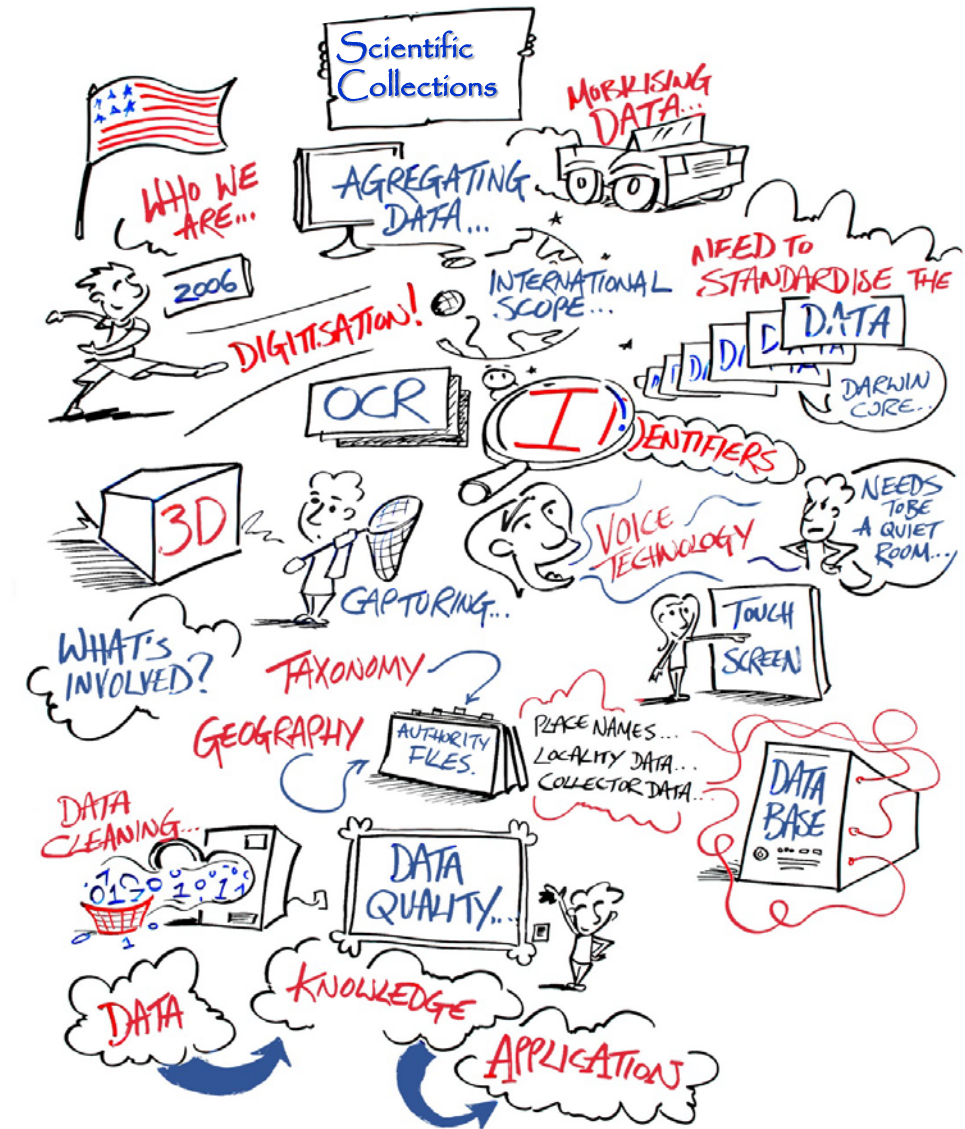 Scientific
Collections
MOBILISING
DATA...
WHO WE
ARE...
AGREGATING
DATA...
2006
DIGITISATION!
INTERNATIONAL
SCOPE...
NEED TO
STANDARDISE THE
DATA
DARWIN
CORE...
OCR
IDENTIFIERS
3D
CAPTURING...
VOICE
TECHNOLOGY
NEEDS
TO BE
A QUIET
ROOM...
TOUCH
SCREEN
WHAT'S
INVOLVED?
TAXONOMY
GEOGRAPHY
AUTHORITY
FILES.
PLACE NAMES...
LOCALITY DATA...
COLLECTOR DATA...
DATA
BASE
DATA
CLEANING...
DATA
QUALITY...
DATA
KNOWLEDGE
APPLICATION